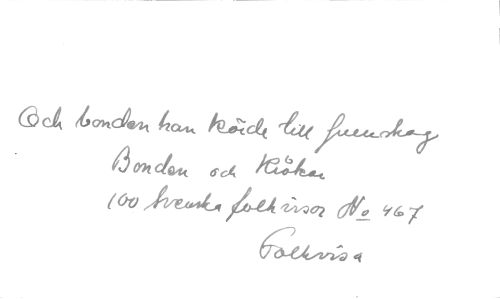 Och bonden han körde till furuskog
Bonden och Kråkan
100 Svenska folkvisor No 467
Folkvisa